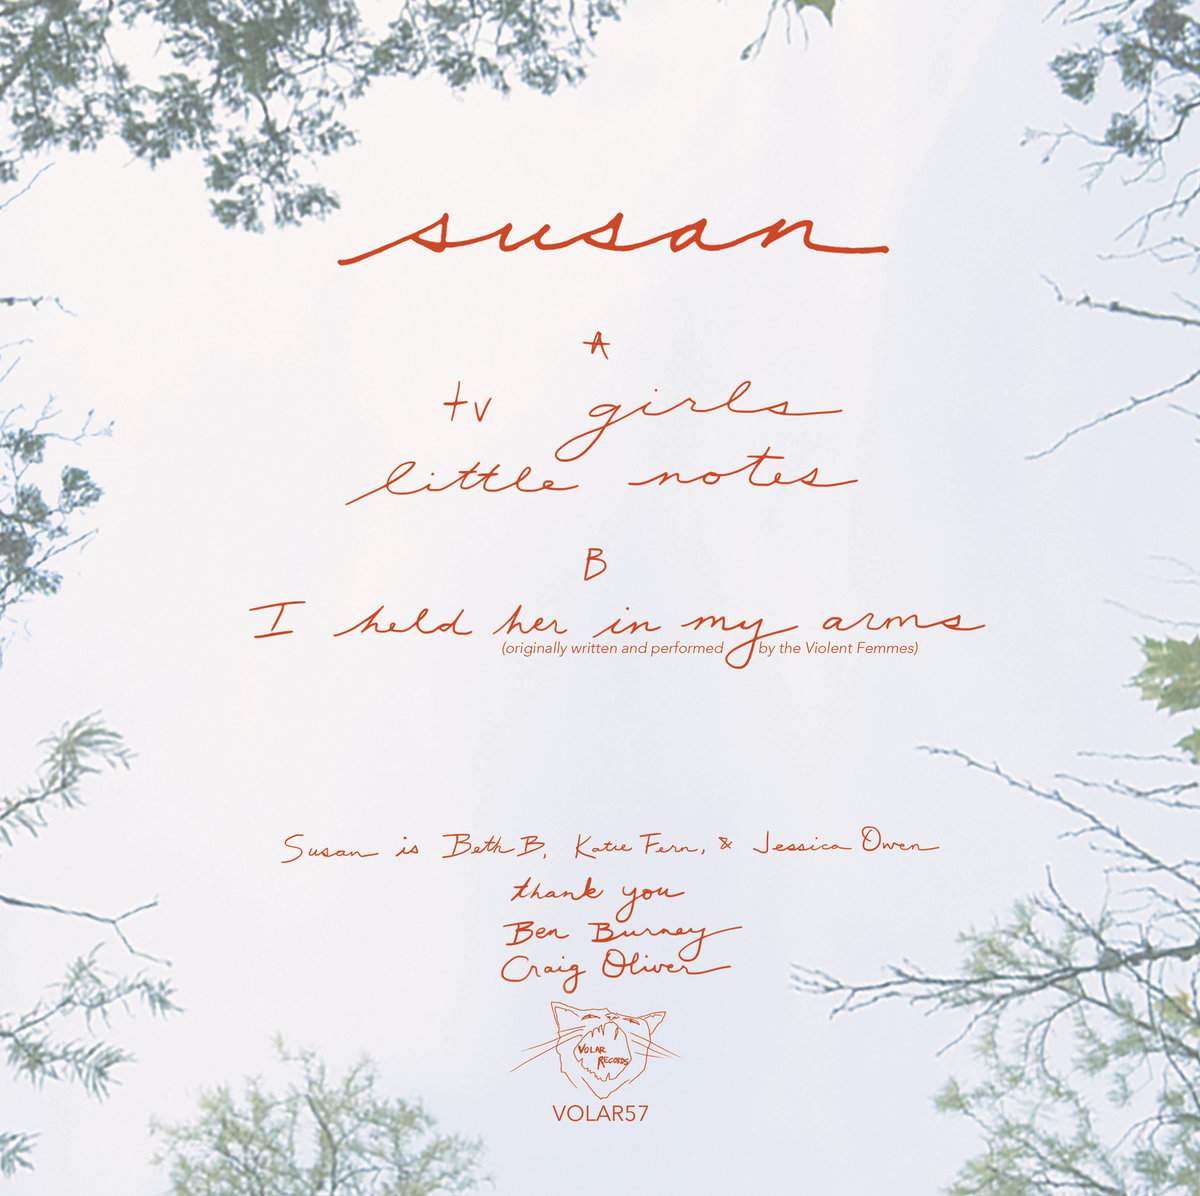 susan
A
tv girls
little notes
B
I held her in my arms
(originally written and performed by the Violent Femmes)
Susan is Beth B, Katie Fern, & Jessica Owen
thank you
Ben Burney
Craig Oliver
VOLAR
RECORDS
VOLAR57